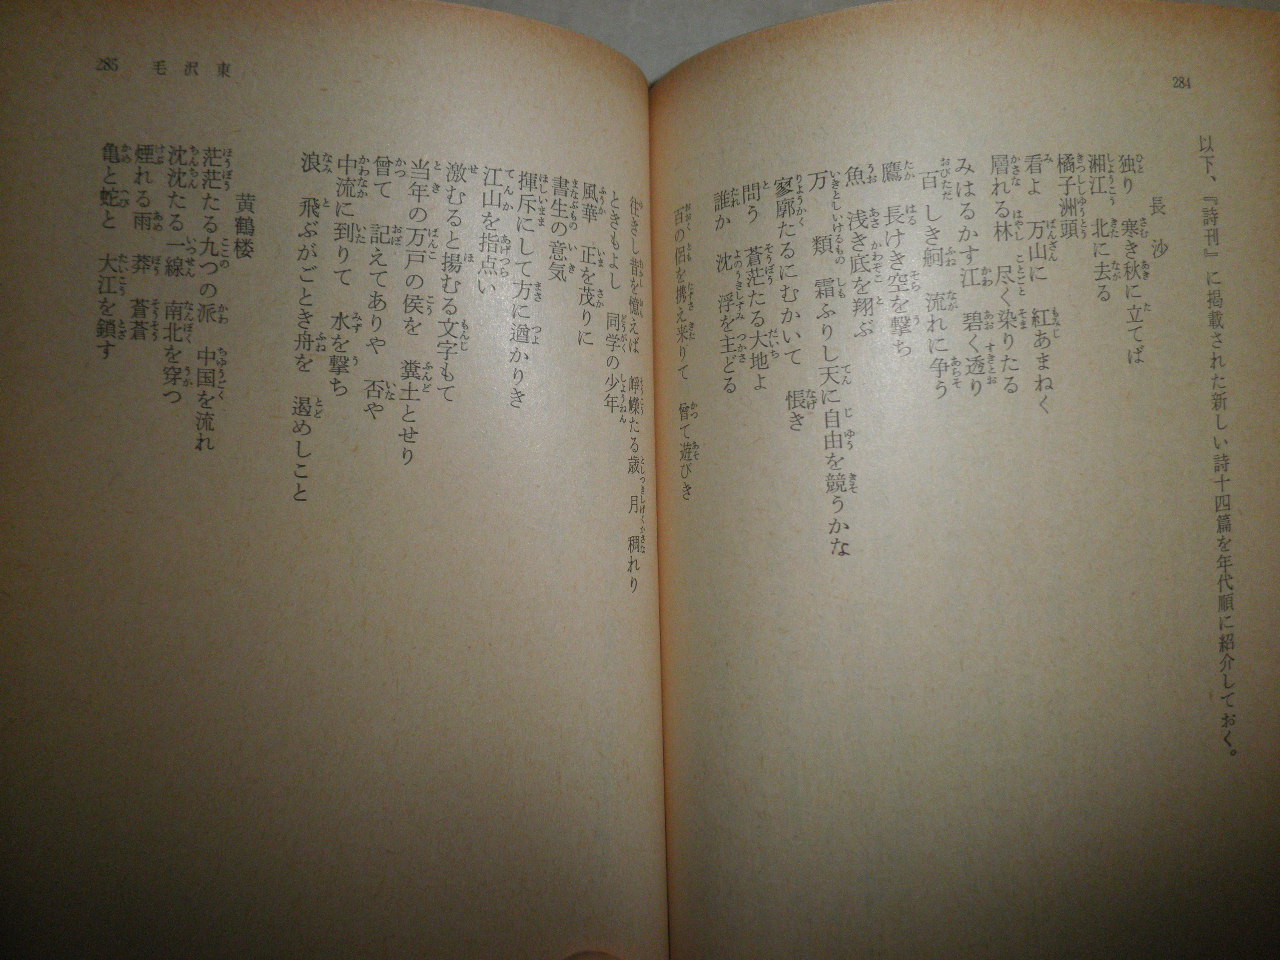 284
以下、『詩刊』に掲載された新しい詩十四篇を年代順に紹介しておく。
長沙
独り　寒き秋に立てば
湘江　北に去る
橘子洲頭
看よ　万山に　紅あまねく
層れる林　尽く染りたる
みはるかす江　碧く透り
百しき舸　流れに争う
鷹　長けき空を撃ち
魚　浅き底を翔ぶ
万類　霜ふりし天に自由を競うかな
寥廓たるにむかいて　悵き
問う　蒼茫たる大地よ
誰か　沈浮を主どる
百の侶を携え来りて　曾て遊びき
往きし昔を憶えば　崢嶸たる歳月稠れり
ときもよし　同学の少年
風華　正を茂りに
書生の意気
揮斥にして方に遒かりき
江山を指点い
激むると揚むる文字もて
当年の万戸の侯を　糞土とせり
曾て　記えてありや　否や
中流に到りて　水を撃ち
浪　飛ぶがごとき舟を　遏めしこと
黄鶴楼
茫茫たる九つの派　中国を流れ
沈沈たる一線　南北を穿つ
煙れる雨　莽　蒼蒼
亀と蛇と　大江を鎖す
285　毛沢東